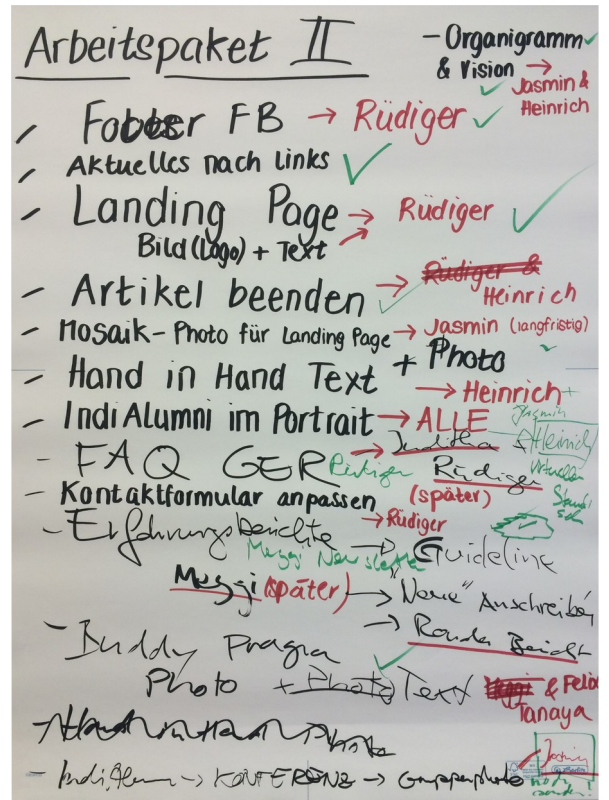 Arbeitspaket II
- Organigramm
& Vision →
Jasmin &
Heinrich
- Footer FB → Rüdiger
- Aktuelles nach links
- Landing Page → Rüdiger
Bild (Logo) + Text
- Artikel beenden → Rüdiger &
Heinrich
- Mosaik - Photo für Landing Page → Jasmin (langfristig)
- Hand in Hand Text + Photo
→ Heinrich
- IndiAlumni im Portrait → ALLE
Jasmin
- FAQ GER → Juditha +
Heinrich
Rüdiger Rüdiger
- Kontaktformular anpassen (später)
→ Rüdiger
- Erfahrungsberichte → Guideline
Meggi Newsletter
Meggi (später) → Neue" Anschreiben
→ Bericht
- Buddy
Photo + Photo Text & Felix
Tanaya
- Hand in Hand Photo
- IndiAlumni → KONFERENZ → Gruppenphoto